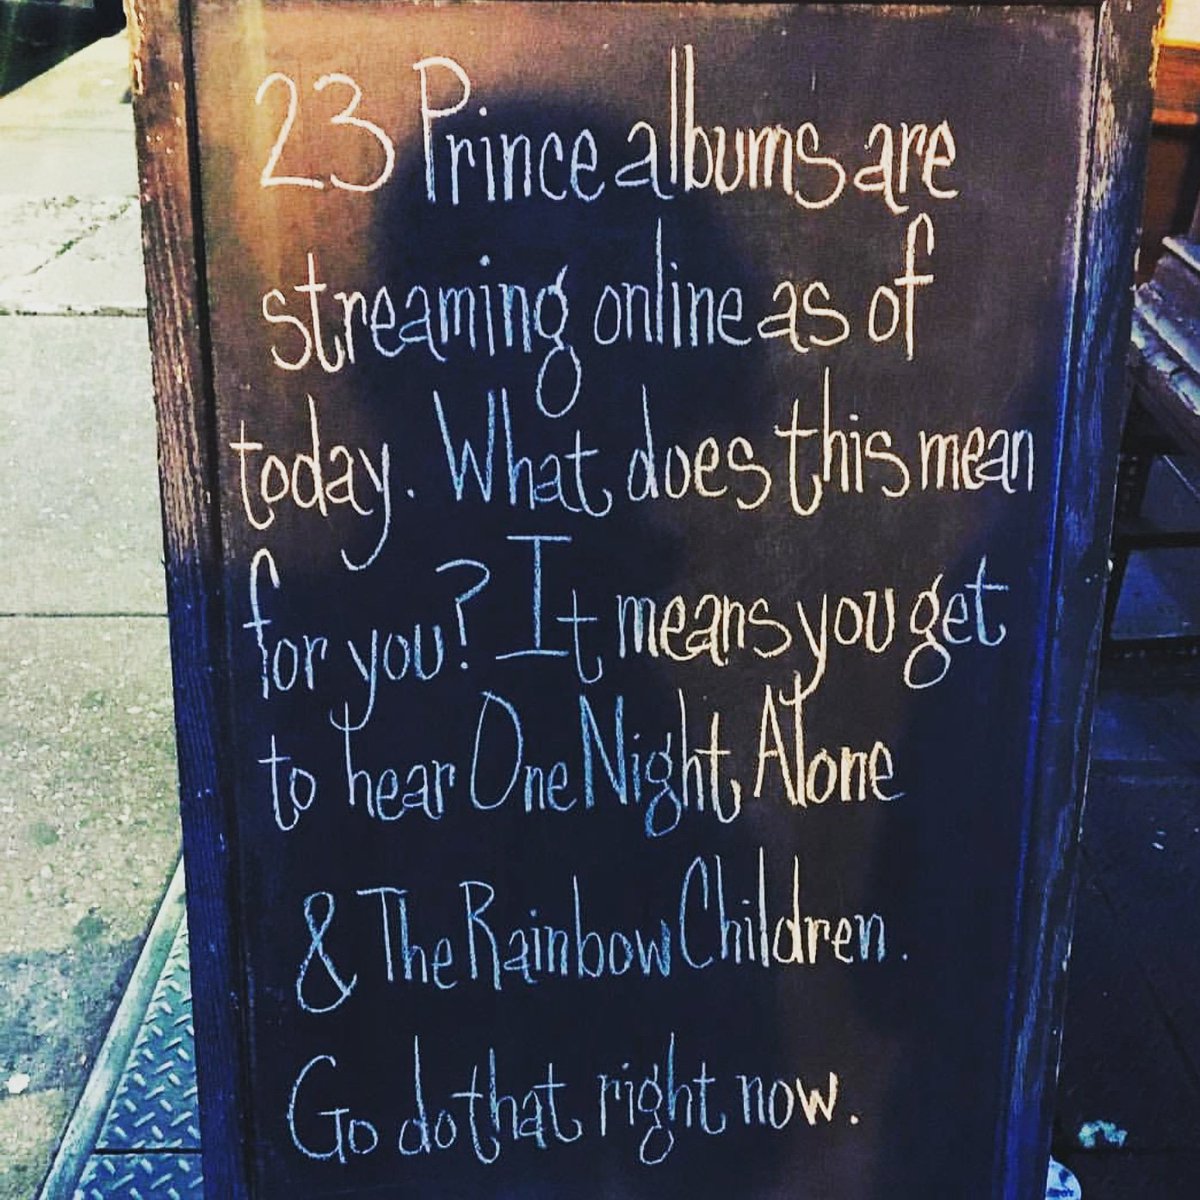 23 Prince albums are
streaming online as of
today. What does this mean
for you? It means you get
to hear One Night Alone
& The Rainbow Children.
Go do that right now.